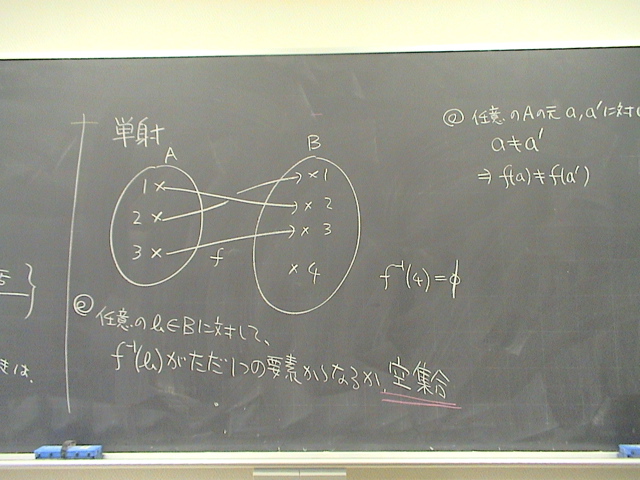 単射
A
B
1 ×
2 ×
3 ×
× 1
× 2
× 3
× 4
f
f⁻¹(4) = φ
② 任意のb∈Bに対して、
f⁻¹(b)がただ1つの要素からなるか、空集合
@ 任意のAの元 a, a'に対し
a ≠ a'
⇒ f(a) ≠ f(a')
きは、